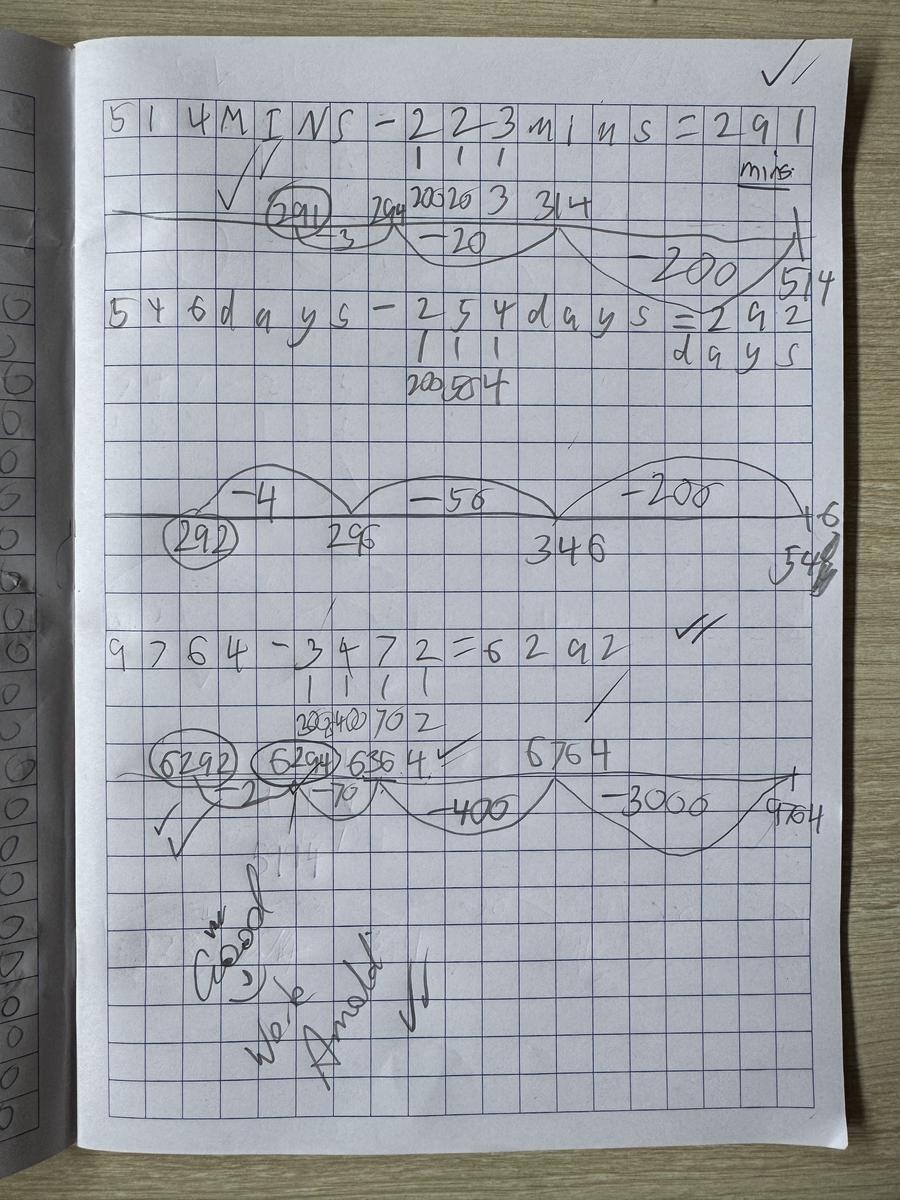 514MINS-223mins=291
mins
200 20 3
291 294 314
-3 -20 -200 514
546days-254days=292
days
200 50 4
-4 -50 -200
292 296 346 546
9764-3472=6292
400 70 2
6292 6294 6364 6764
-2 -70 -400 -3000 9764
Good
Work
Arnold